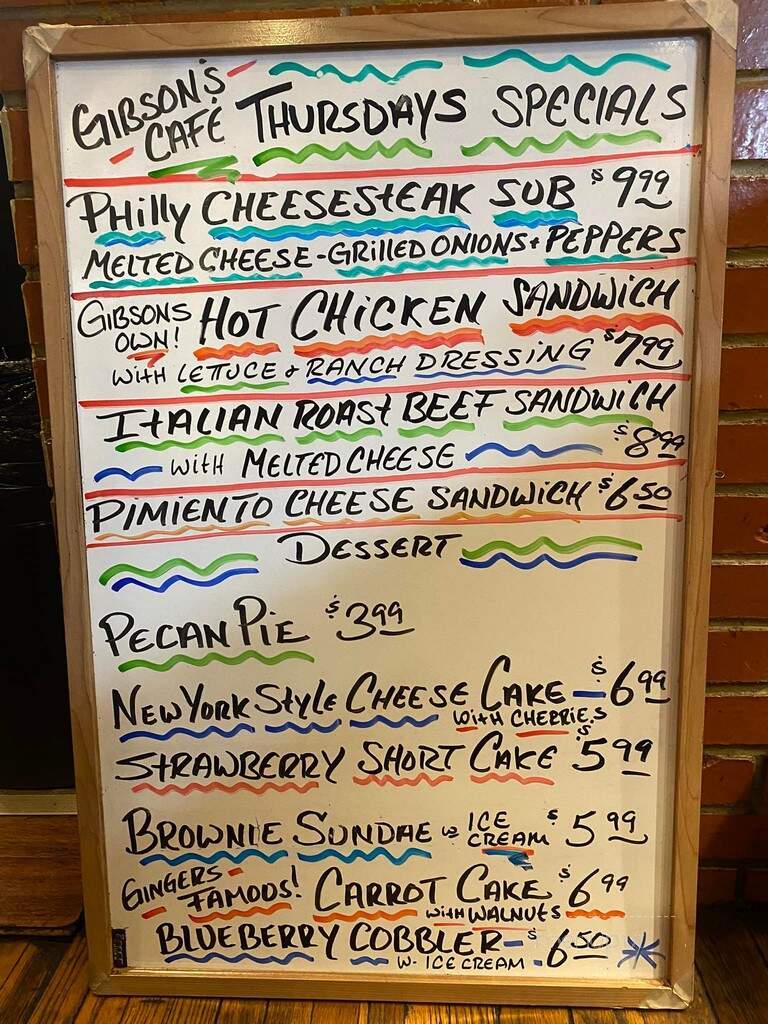 GIBSON'S CAFÉ THURSDAYS SPECIALS
PHILLY CHEESESTEAK SUB $9.99
MELTED CHEESE - GRILLED ONIONS + PEPPERS
GIBSONS OWN! HOT CHICKEN SANDWICH
WITH LETTUCE & RANCH DRESSING $7.99
ITALIAN ROAST BEEF SANDWICH
WITH MELTED CHEESE $8.99
PIMIENTO CHEESE SANDWICH $6.50
DESSERT
PECAN PIE $3.99
NEW YORK STYLE CHEESE CAKE - $6.99
WITH CHERRIES
STRAWBERRY SHORT CAKE $5.99
BROWNIE SUNDAE W ICE CREAM $5.99
GINGERS FAMOUS! CARROT CAKE $6.99
WITH WALNUTS
BLUEBERRY COBBLER - $6.50
W- ICE CREAM